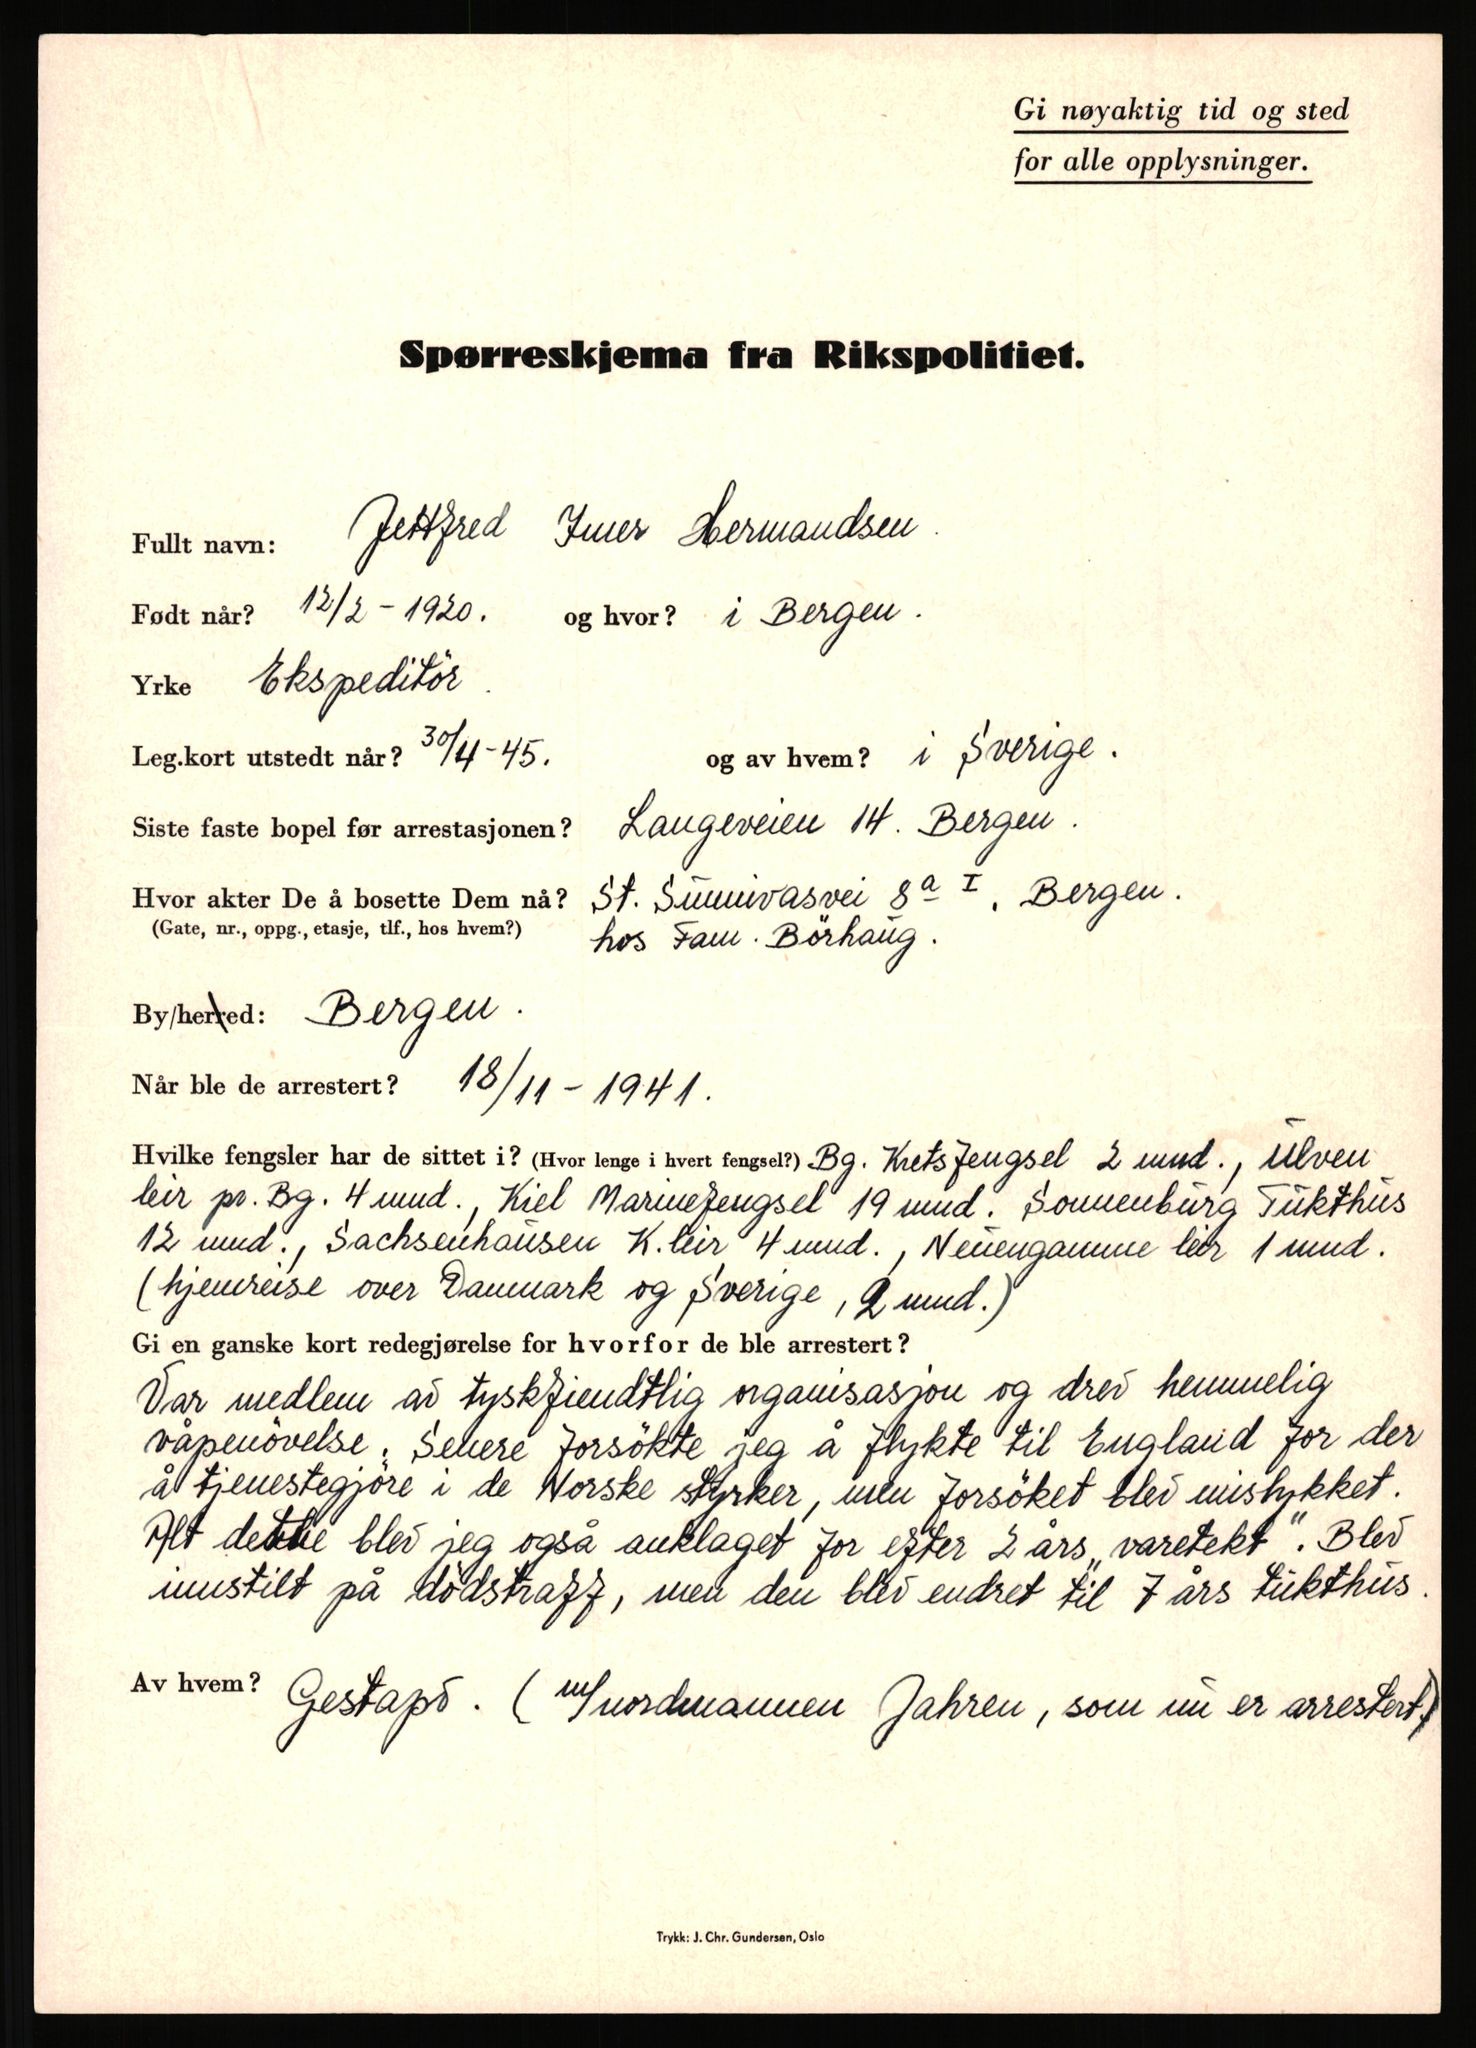 Gi nøyaktig tid og sted
for alle opplysninger.
Spørreskjema fra Rikspolitiet.
Fullt navn: Jettfred Imer Hermandsen.
Født når? 12/2 - 1920. og hvor? i Bergen.
Yrke Ekspeditör.
Leg.kort utstedt når? 30/4-45. og av hvem? i Sverige.
Siste faste bopel før arrestasjonen? Langeveien 14. Bergen.
Hvor akter De å bosette Dem nå? St. Sunnivasvei 8a I. Bergen.
(Gate, nr., oppg., etasje, tlf., hos hvem?) hos Fam. Börhaug.
By/herred: Bergen.
Når ble de arrestert? 18/11 - 1941.
Hvilke fengsler har de sittet i? (Hvor lenge i hvert fengsel?) Bg. Kretsfengsel 2 mnd., Ulven
leir pr. Bg. 4 mnd., Kiel Marinefengsel 19 mnd. Sonnenburg Tukthus
12 mnd., Sachsenhausen K.leir 4 mnd., Neuengamme leir 1 mnd.
(hjemreise over Danmark og Sverige, 2 mnd.)
Gi en ganske kort redegjørelse for hvorfor de ble arrestert?
Var medlem av tyskfiendtlig organisasjon og drev hemmelig
våpenövelse. Senere forsökte jeg å flykte til England for der
å tjenestegjöre i de Norske styrker, men forsöket blev mislykket.
Alt dette blev jeg også anklaget for efter 2 års „varetekt". Blev
innstilt på dödstraff, men den blev endret til 7 års tukthus.
Av hvem? Gestapo. (m/nordmannen Jahren, som nu er arrestert.)
Trykk: J. Chr. Gundersen, Oslo